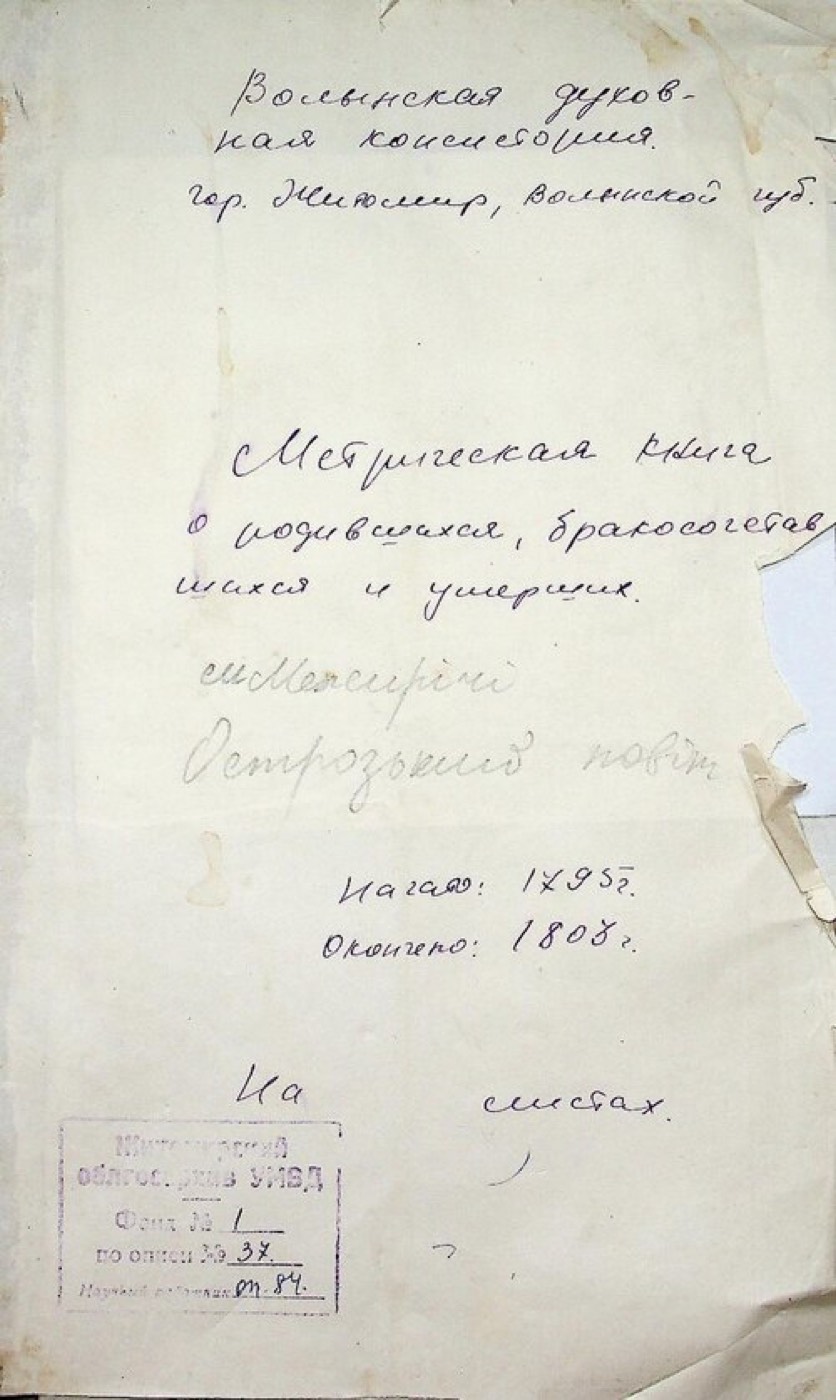 Волынская духов-
ная консистория.
гор. Житомир, Волынской губ.
Метрическая книга
о родившихся, бракосочетав
шихся и умерших.
Межирічі
Острозький повіт
Начато: 1795г.
Окончено: 1803г.
На листах.
Житомирский
облгосархив УМВД
Фонд № 1
по описи № 37.
Научный работник оп. 84.